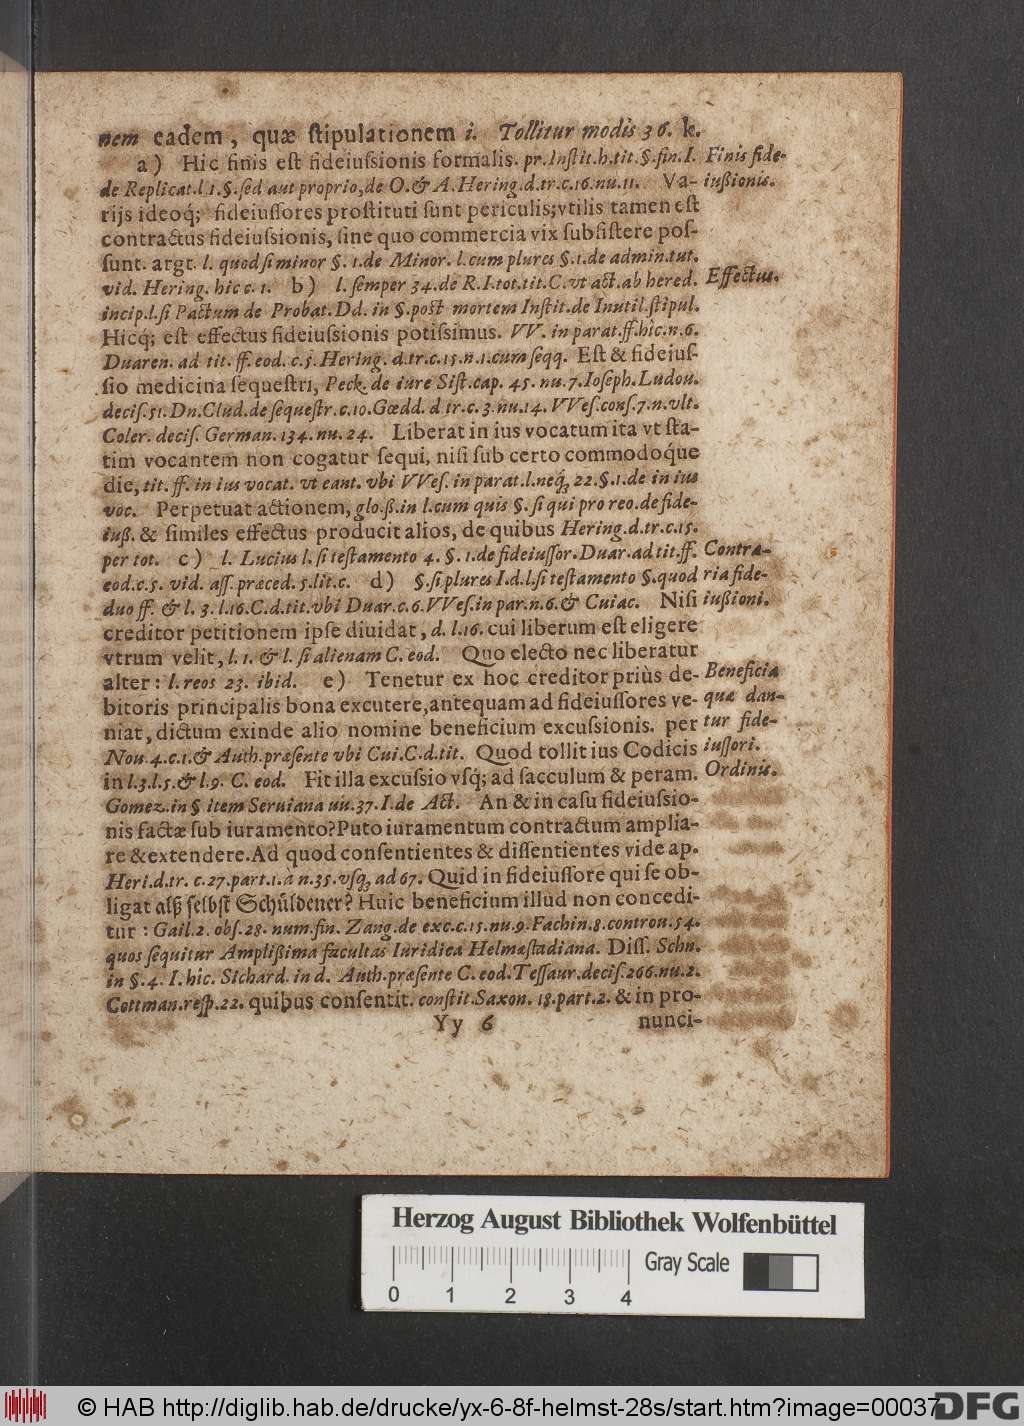 nem eadem, quæ ſtipulationem i. Tollitur modis 36. k.
a) Hic finis eſt fideiuſsionis formalis. pr. Inſtit. h. tit. §. fin. I.
Finis fide-
de Replicat. l. 1. §. ſed aut proprio, de O. & A. Hering. d. tr. c. 16. nu. 11. Va-
iußionis.
rijs ideoq́; fideiuſſores proſtituti ſunt periculis; vtilis tamen eſt
contractus fideiuſsionis, ſine quo commercia vix ſubſiſtere poſ-
ſunt. argt. l. quod ſi minor §. 1. de Minor. l. cum plures §. 1. de admin. tut.
vid. Hering. hic c. 1. b) l. ſemper 34. de R. I. tot. tit. C. vt act. ab hered.
Effectus.
incip. l. ſi Pactum de Probat. Dd. in §. poſt mortem Inſtit. de Inutil. ſtipul.
Hicq́; eſt effectus fideiuſsionis potiſsimus. VV. in parat. ff. hic. n. 6.
Duaren. ad tit. ff. eod. c. 5. Hering. d. tr. c. 15. n. 1. cum ſeqq. Eſt & fideiuſ-
ſio medicina ſequeſtri, Peck. de iure Siſt. cap. 45. nu. 7. Ioſeph. Ludou.
deciſ. 51. Dn. Clud. de ſequeſtr. c. 10. Gœdd. d tr. c. 3. nu. 14. VVeſ. conſ. 7. n. vlt.
Coler. deciſ. German. 134. nu. 24. Liberat in ius vocatum ita vt ſta-
tim vocantem non cogatur ſequi, niſi ſub certo commodoque
die, tit. ff. in ius vocat. vt eant. vbi VVeſ. in parat. l. neq́; 22. §. 1. de in ius
voc. Perpetuat actionem, glo. ß. in l. cum quis §. ſi qui pro reo. de fide-
iuß. & ſimiles effectus producit alios, de quibus Hering. d. tr. c. 15.
per tot. c) l. Lucius l. ſi teſtamento 4. §. 1. de fideiuſſor. Duar. ad tit. ff.
Contra-
eod. c. 5. vid. aſſ. præced. 5. lit. c. d) §. ſi plures I. d. l. ſi teſtamento §. quod
ria fide-
duo ff. & l. 3. l. 16. C. d. tit. vbi Duar. c. 6. VVeſ. in par. n. 6. & Cuiac. Niſi
iußioni.
creditor petitionem ipſe diuidat, d. l. 16. cui liberum eſt eligere
vtrum velit, l. 1. & l. ſi alienam C. eod. Quo electo nec liberatur
alter: l. reos 23. ibid. e) Tenetur ex hoc creditor priùs de-
Beneficia
bitoris principalis bona excutere, antequam ad fideiuſſores ve-
quæ dan-
niat, dictum exinde alio nomine beneficium excuſsionis. per
tur fide-
Nou. 4. c. 1. & Auth. præſente vbi Cui. C. d. tit. Quod tollit ius Codicis
iuſſori.
in l. 3. l. 5. & l. 9. C. eod. Fit illa excuſsio vſq́; ad ſacculum & peram.
Ordinis.
Gomez. in § item Seruiana nu. 37. I. de Act. An & in caſu fideiuſsio-
nis factæ ſub iuramento? Puto iuramentum contractum amplia-
re & extendere. Ad quod conſentientes & diſſentientes vide ap.
Heri. d. tr. c. 27. part. 1. à n. 35. vſq́; ad 67. Quid in fideiuſſore qui ſe ob-
ligat alß ſelbſt Schüldener? Huic beneficium illud non concedi-
tur: Gail. 2. obſ. 28. num. fin. Zang. de exc. c. 15. nu. 9. Fachin. 8. controu. 54.
quos ſequitur Ampliſsima facultas Iuridica Helmæſtadiana. Diſſ. Schn.
in §. 4. I. hic. Sichard. in d. Auth. præſente C. eod. Teſſaur. deciſ. 266. nu. 2.
Cottman. reſp. 22. quibus conſentit. conſtit. Saxon. 18. part. 2. & in pro-
Yy 6 nunci-
Herzog August Bibliothek Wolfenbüttel
Gray Scale
0 1 2 3 4
© HAB http://diglib.hab.de/drucke/yx-6-8f-helmst-28s/start.htm?image=00037
DFG